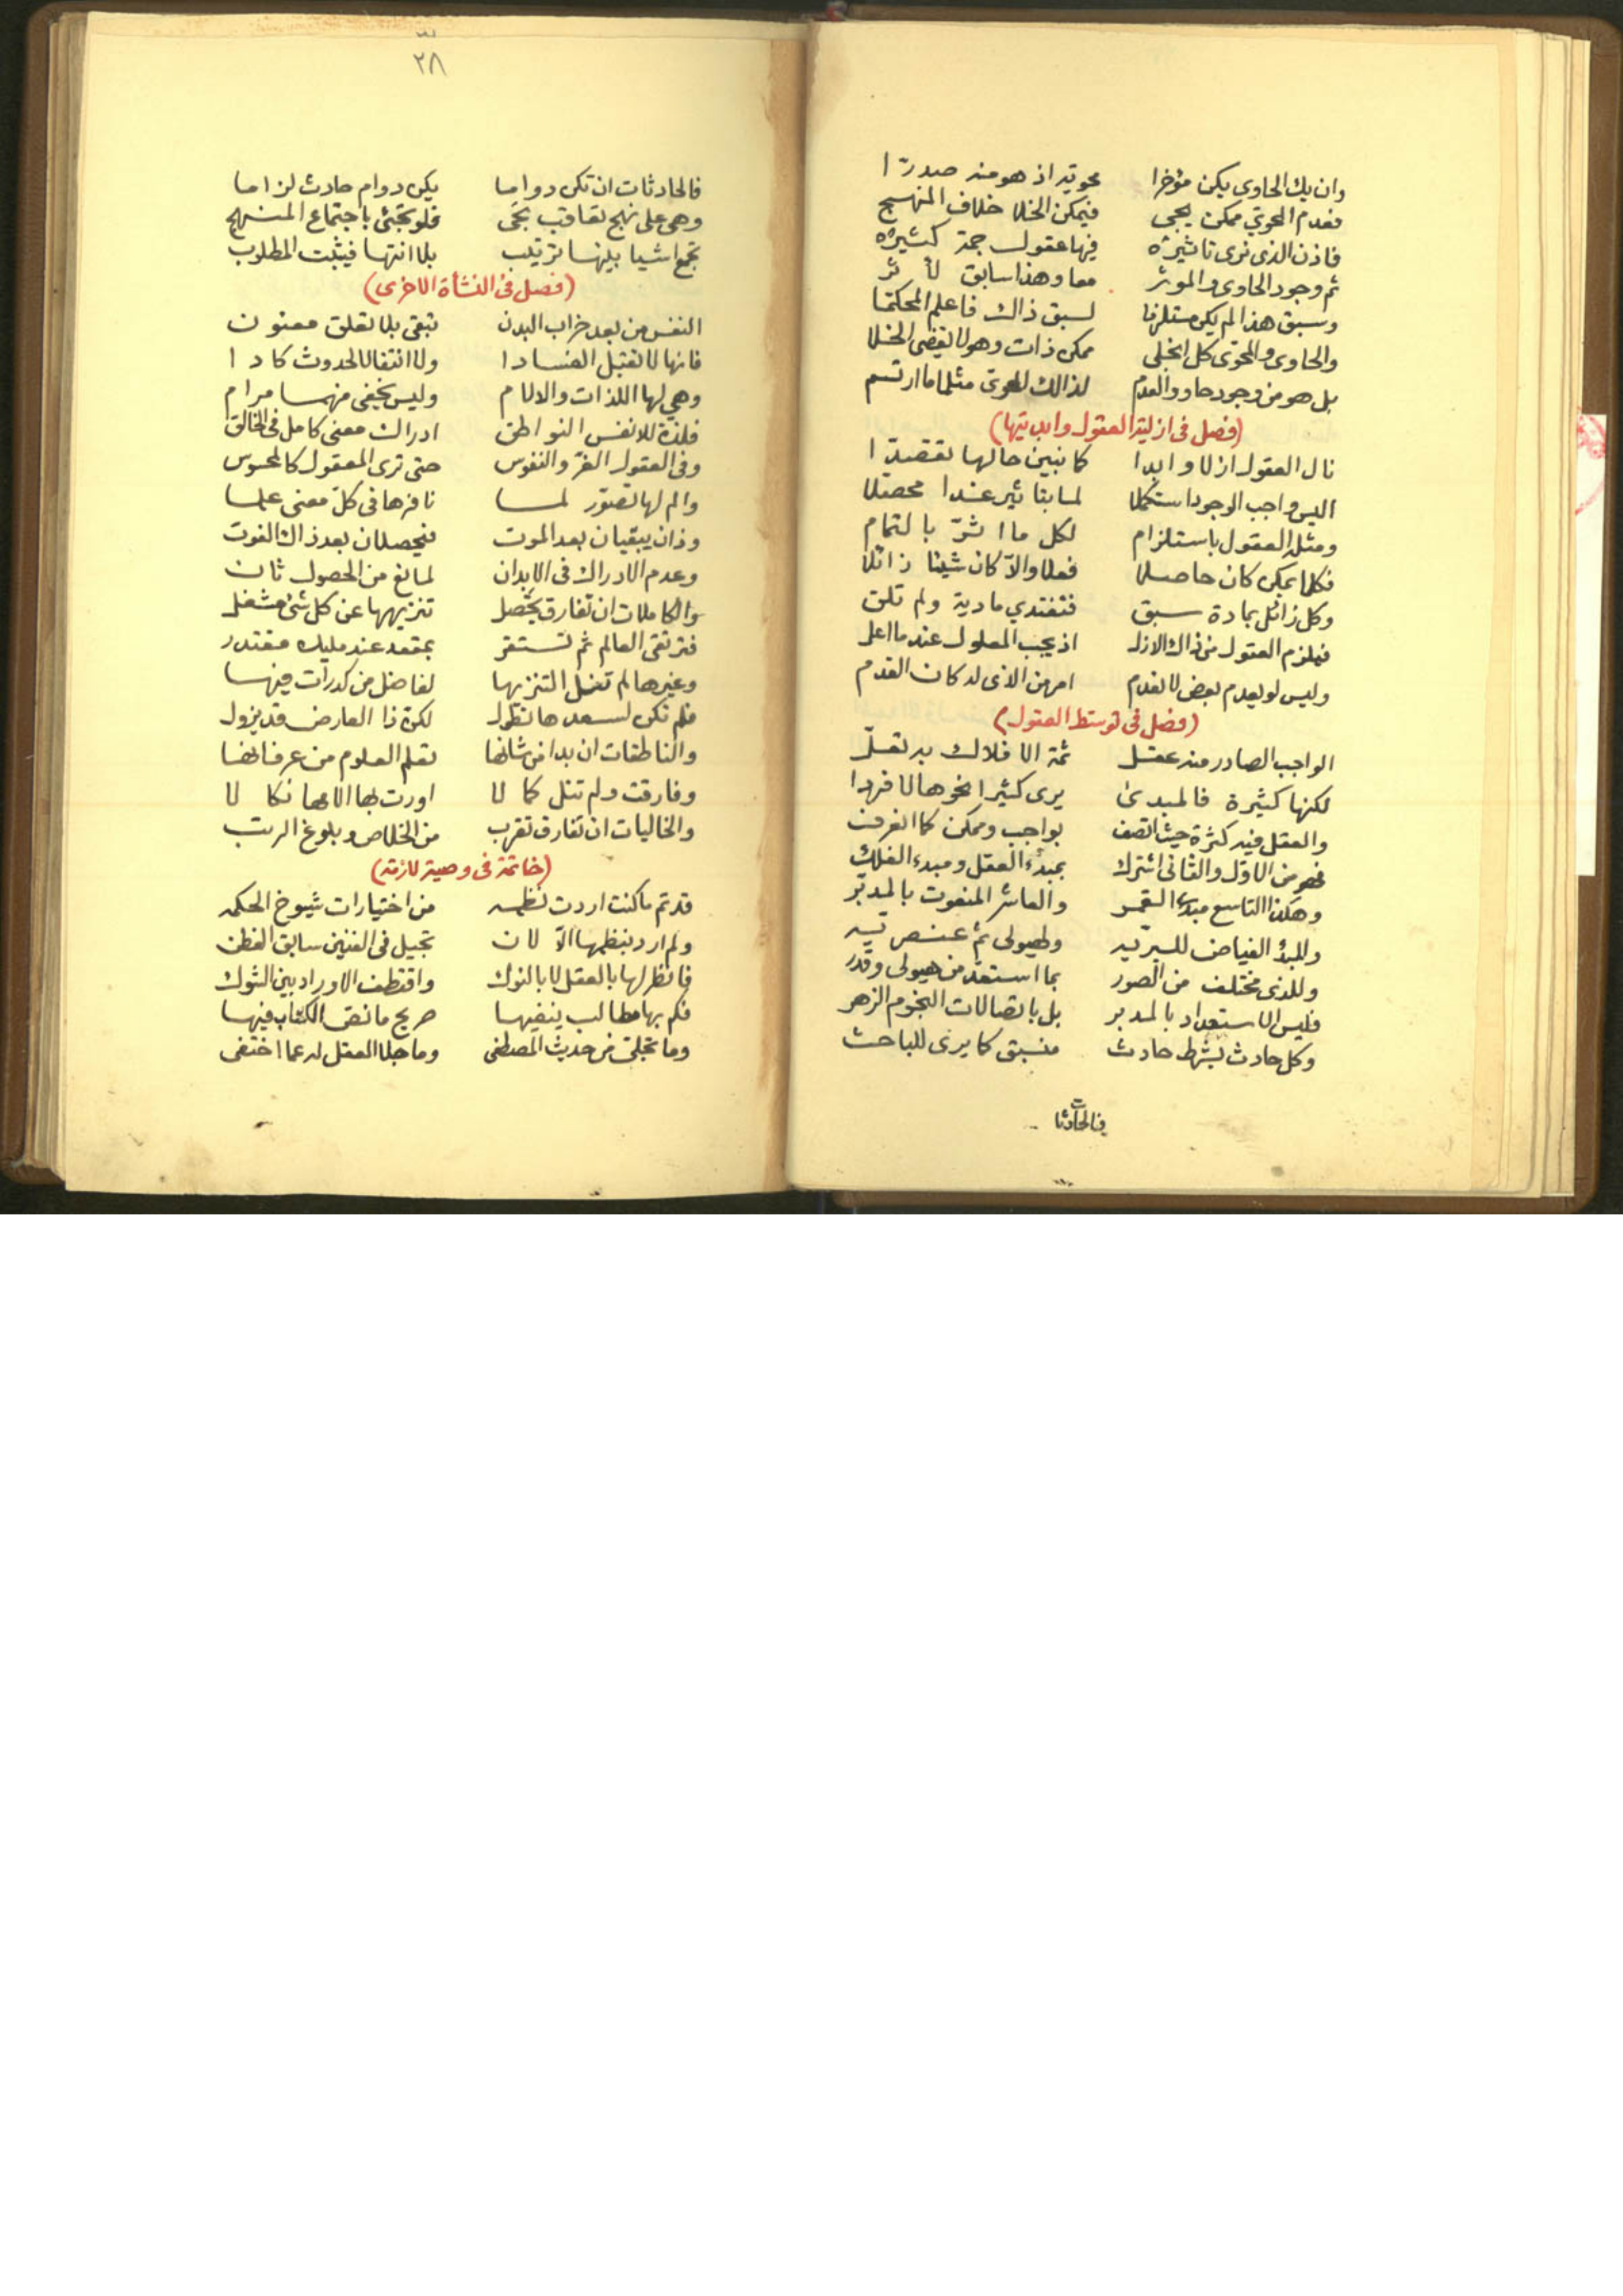 وان يك الحاوى يكن مؤخرا محويه اذ هو منه صدرا
فعدم المحوي ممكن يجى فيمكن الخلا خلاف المنهج
فاذن الذى نرى تاثيره فيها عقول جمة كثيره
ثم وجود الحاوى والموثر معا وهذا سابق لأثر
وسبق هذا لم يكن مستلزما لسبق ذاك فاعلم المحكما
والحاوى والمحوى كل انجلى ممكن ذات وهو لا يقضى الخلا
بل هو من وجود حاو والعدم لذالك المحوى مثلما ارتسم
(فصل فى ازلية العقول وابديتها)
نال العقول ازلا وابدا كما نبين حالها تقصدا
اليس واجب الوجود استكملا لما بتاثير غدا محصلا
ومثله العقول باستلزام لكل ما اثرّ بالتمام
فكلما يمكن كان حاصلا فعلا والاّ كان شيئا زائلا
وكل زائل بمادة سبق فتغتدي مادية ولم تلق
فيلزم العقول من ذاك الازل اذ يجب المعلول عند ما اعل
وليس لو يعدم بعض لا لعدم امر من الذى له كان القدم
(فصل فى توسط العقول)
الواجب الصادر منه عقل ثمة الافلاك به تعلّ
لكنها كثيرة فالمبدئ يرى كثيرا نحوها لا فردا
والعقل فيه كثرة حيث اتصف بواجب وممكن كما انعرف
فهو من الاوّل والثانى اشترك بمبدء العقل ومبدء الفلك
وهكذا التاسع مبدئ القمر والعاشر المنعوت بالمدبّر
والمبدُ الفياض للبريّه ولهيولى ثم عنصريّه
وللذى مختلف من الصور بما استعدّ من هيولى وقدر
فليس الاستعداد بالمدبر بل باتصالات النجوم الزهر
وكل حادث بشرط حادث منسبق كما يرى للباحث
فالحادثات
٢٨
فالحادثات ان تكن دواما يكن دوام حادث لزاما
وهى على نهج تعاقب تجى فلو تجئى باجتماع المنهج
تجمع اشيا بينها ترتيب بلا انتها فيثبت المطلوب
(فصل فى النشأة الاخرى)
النفس من بعد خراب البدن تبقى بلا تعلق معنون
فانها لا تقبل الفسادا ولا انتقالا لحدوث كادا
وهي لها اللذات والالام وليس يخفى منهما مرام
فلذة للانفس النواطق ادراك معنى كامل فى الخالق
وفى العقول الغرّ والنفوس حتى ترى المعقول كالمحسوس
والم لها تصور لما نافرها فى كلّ معنى علما
وذان يبقيان بعد الموت فيحصلان بعد ذاك الفوت
وعدم الادراك فى الابدان لمانع من الحصول ثان
والكاملات ان تفارق يحصل تنزيهها عن كل شئ مشغل
فترتقى العالم ثم تستقر بمقعد عند مليك مقتدر
وغيرها لم تغل التنزيها لفاضل من كدرات فيها
فلم تكن لسعدها تطول لكن ذا العارض قد يزول
والناطقات ان بدا من شانها تعلم العلوم من عرفانها
وفارقت ولم تنل كمالا اورت بها الامها نكالا
والخاليات ان تفارق تقرب من الخلاص وبلوغ الرتب
(خاتمة فى وصية لازمة)
قد تم ما كنت اردت نظمه من اختيارات شيوخ الحكمه
ولم ارد بنظمها الاّ لان تجيل فى الفنين سابق الفطن
فانظر لها بالعقل لا بالنوك واقتطف الاوراد بين الشوك
فكم بها مطالب ينفيها صريح ما نص الكتاب فيها
وما تجلى من حديث المصطفى وما جلا العقل له عما اختفى